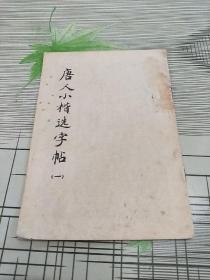 唐人小楷选字帖
(一)